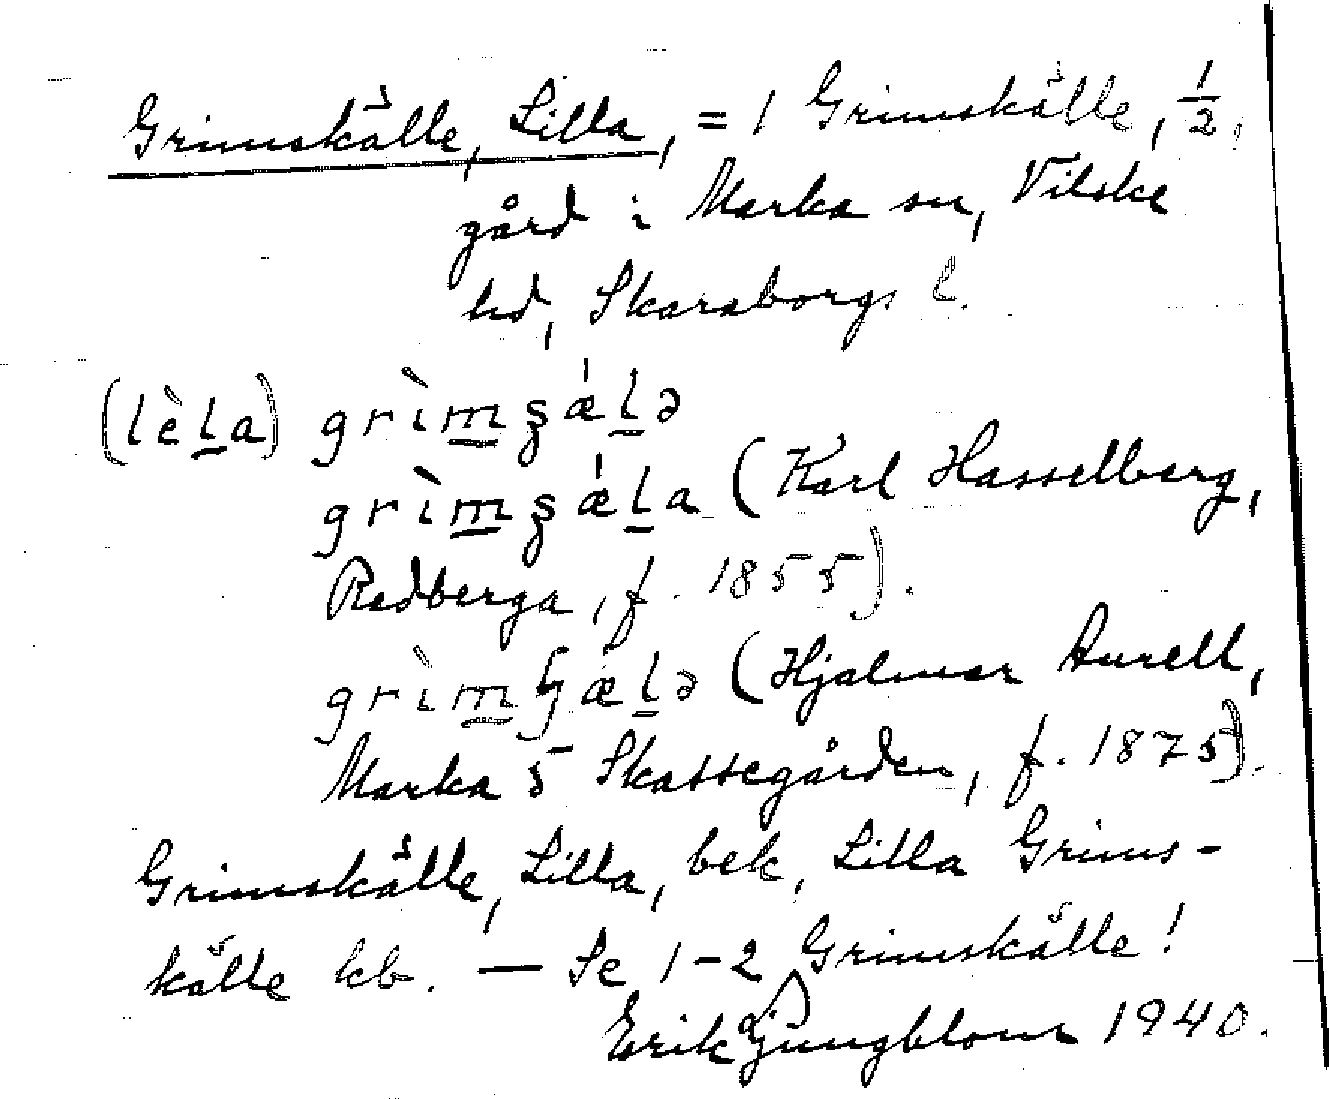 Grimskälle, Lilla, = 1 Grimskälle, 1/2,
gård i Marka sn, Vilske
hd, Skaraborgs l.
(lèla) grìmʂǽlə
grìmʂǽla (Karl Hasselberg,
Redberga, f. 1855).
grìmɧǽlə (Hjalmar Aurell,
Marka 5 Skattegården, f. 1875).
Grimskälle, Lilla, bek, Lilla Grims-
källe kb. — Se 1-2 Grimskälle!
Erik Ljungblom 1940.